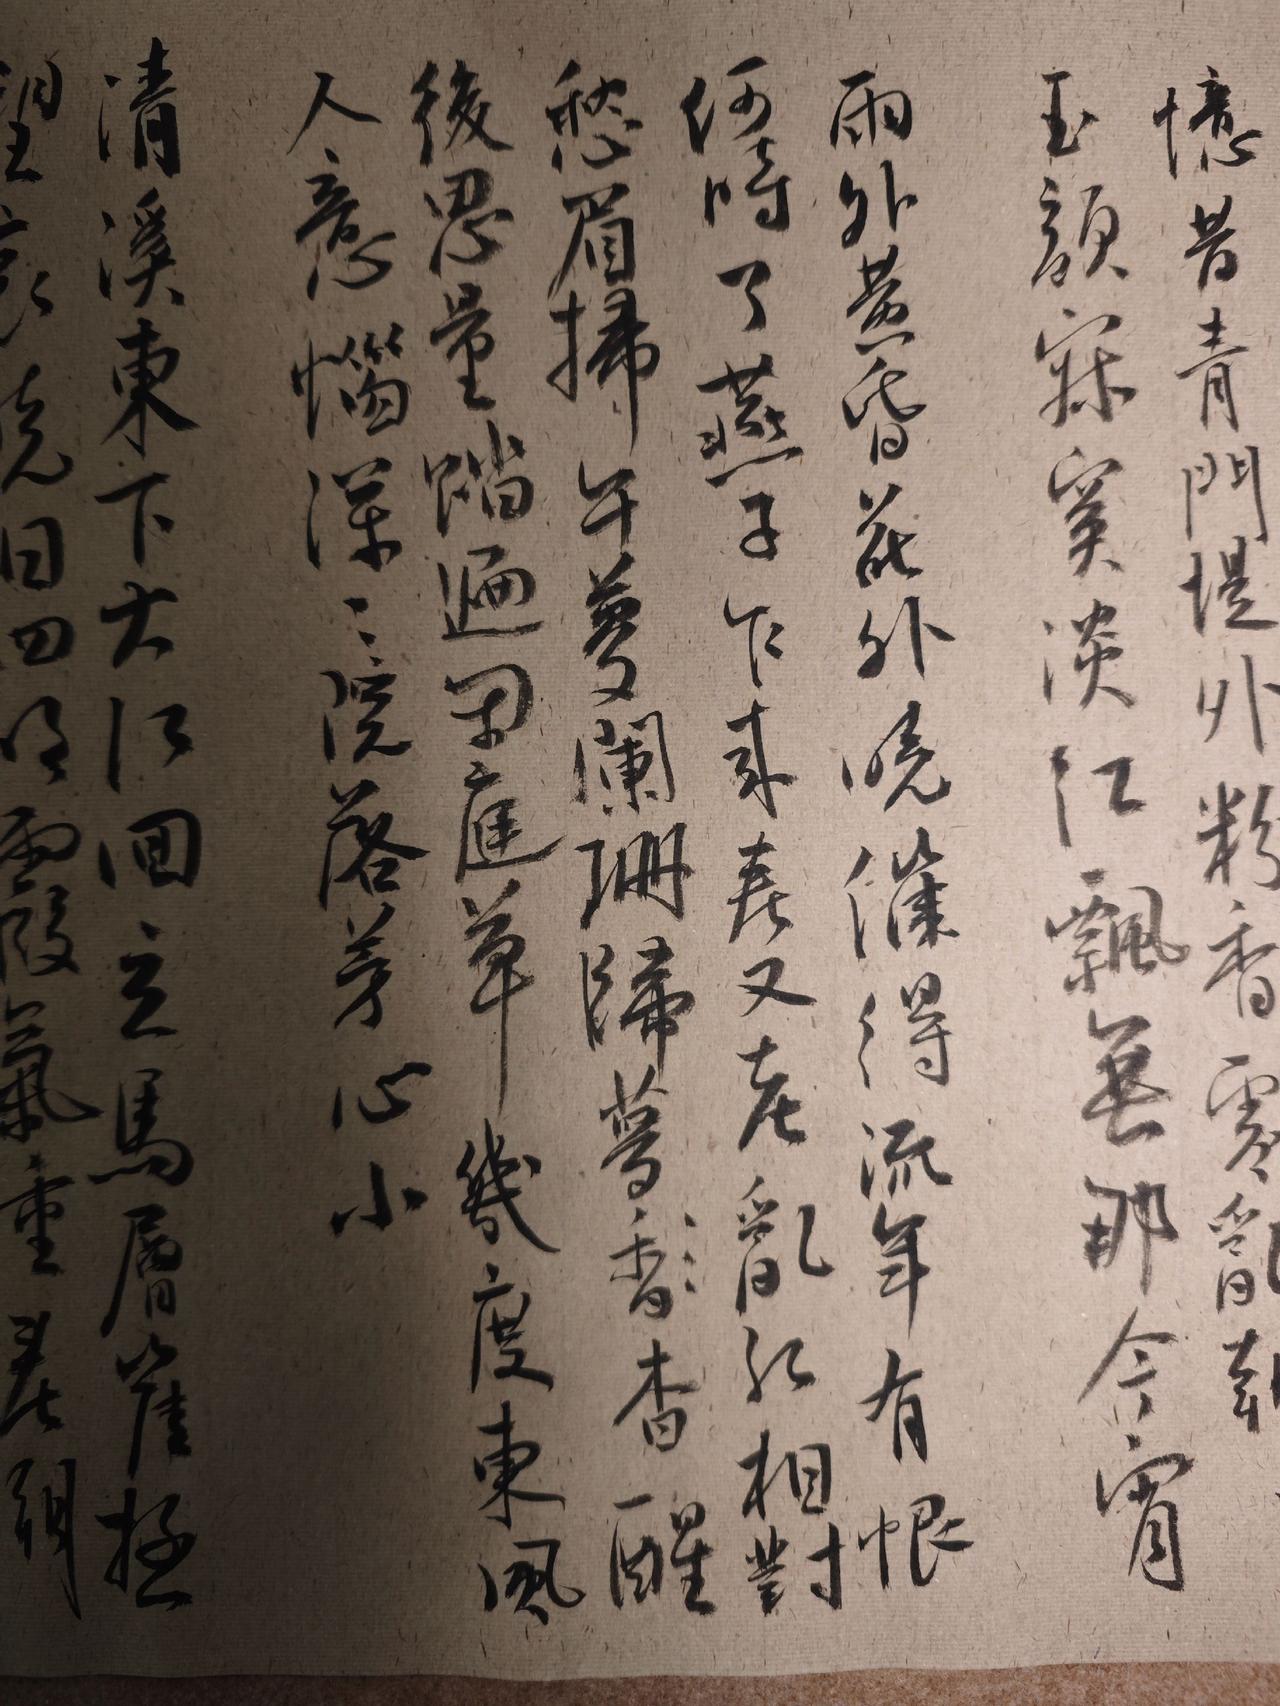 憶昔青門堤外粉香零亂朝
玉顏寂寞淡紅飄無那今宵
雨外黃昏花外曉催得流年有恨
何時了燕子乍來春又老亂紅相對
愁眉掃午夢闌珊歸夢香杳醒
後思量踏遍閒庭草幾度東風
人意惱深〻院落芳心小
清溪東下大江回立馬層崖極
望哀曉日四明霞氣重春潮